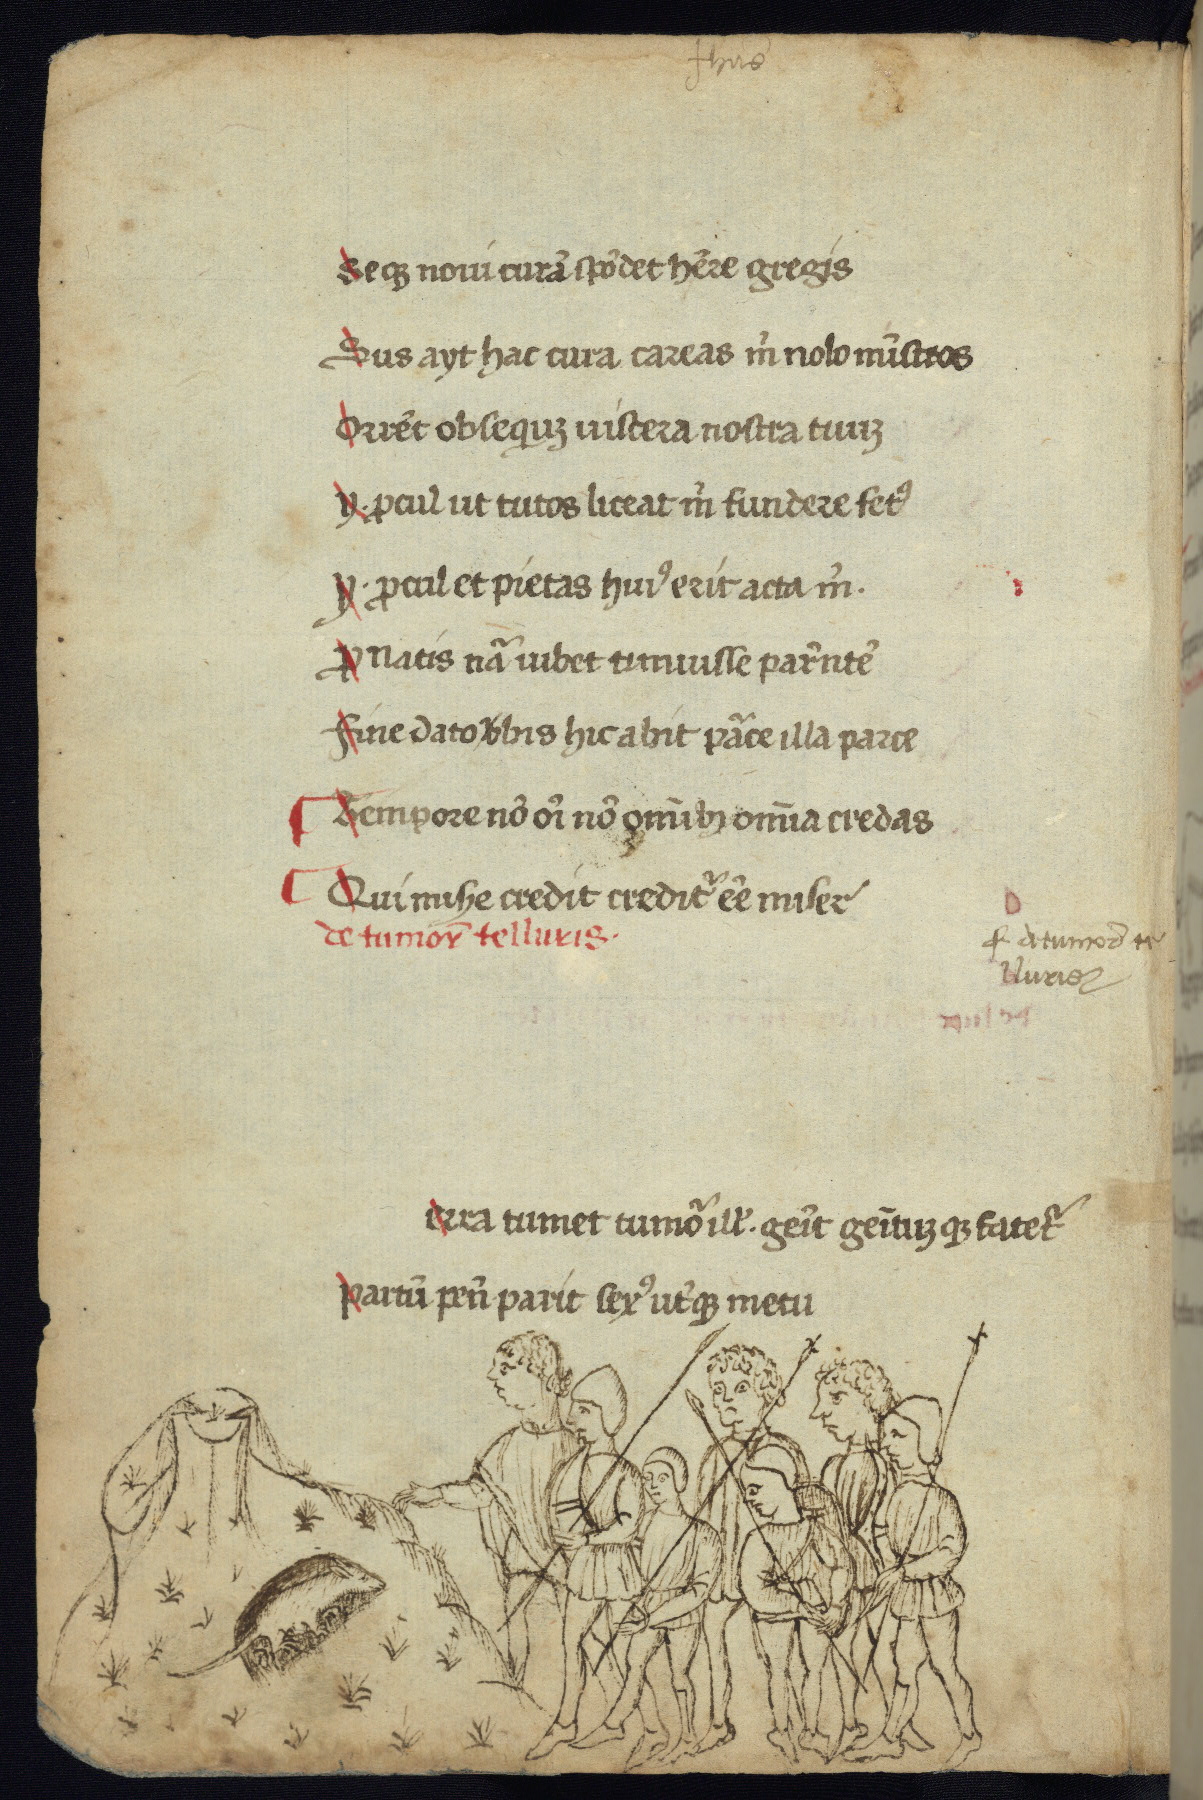 Jhus
Seqȝ noui curā spōdet hēre gregis
Sus ayt hac cura careas m̄ nolo mīstros
Orrēt obsequiȝ uiscera nostra tuuȝ
y. ꝓcul ut tutos liceat m̄ fundere fetꝰ
y. ꝓcul et pietas huiꝰ erit acta m̄.
ꝓ natis nā iubet timuisse parēntē
Fine dato ūbis hic abit pāce illa parce
Tempore nō oī nō om̄ibȝ om̄ia credas
Qui mishe credit creditʳ ēe miser
de tumor̄ telluris.
f de tumor̄ te
lluris
erra tumet tumoʳ ille. gēit gēituȝ qȝ fatetʳ
partū pēn parit sexꝰ ut̄qȝ metu